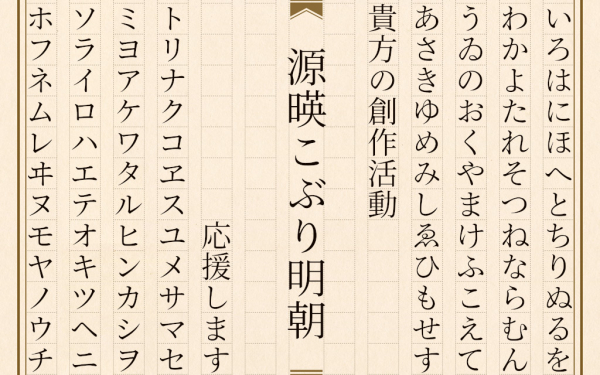 いろはにほへとちりぬるを
わかよたれそつねならむん
うゐのおくやまけふこえて
あさきゆめみしゑひもせす
貴方の創作活動
源暎こぶり明朝
応援します
トリナクコヱスユメサマセ
ミヨアケワタルヒンカシヲ
ソライロハエテオキツヘニ
ホフネムレヰヌモヤノウチ